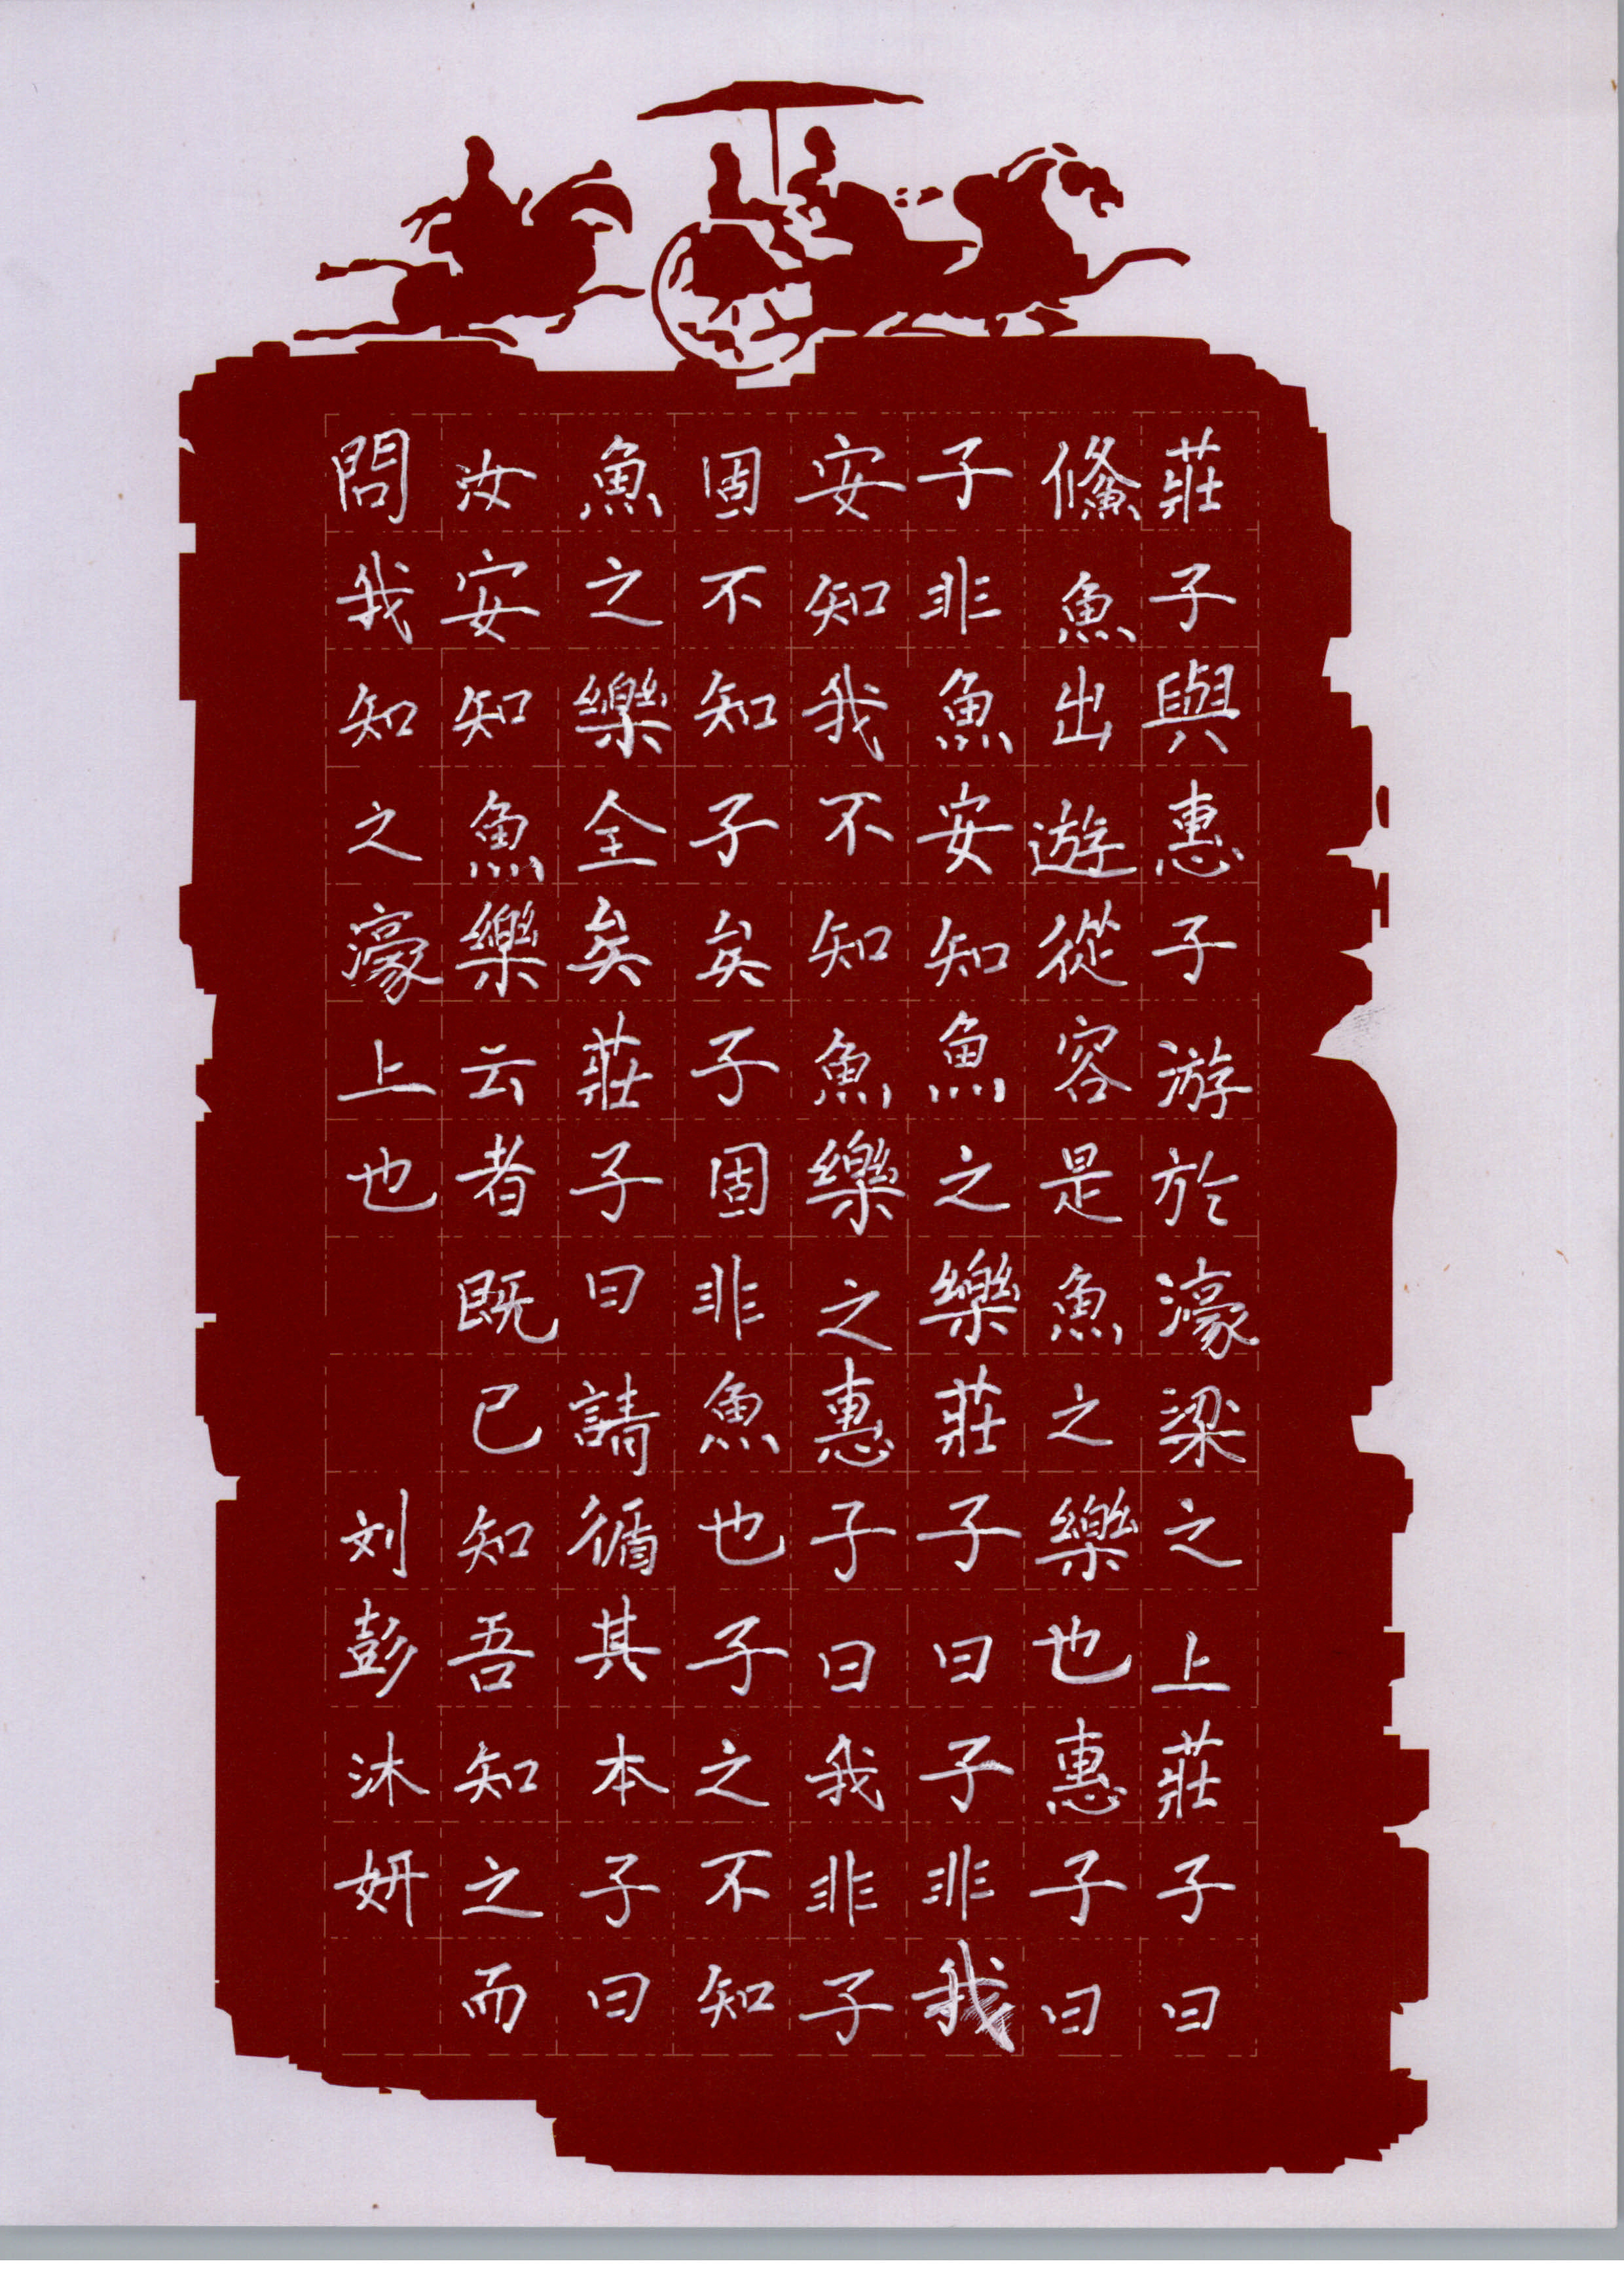 莊子與惠子游於濠梁之上莊子曰
鯈魚出遊從容是魚之樂也惠子曰
子非魚安知魚之樂莊子曰子非我
安知我不知魚樂之惠子曰我非子
固不知子矣子固非魚也子之不知
魚之樂全矣莊子曰請循其本子曰
汝安知魚樂云者既已知吾知之而
問我知之濠上也
刘彭沐妍